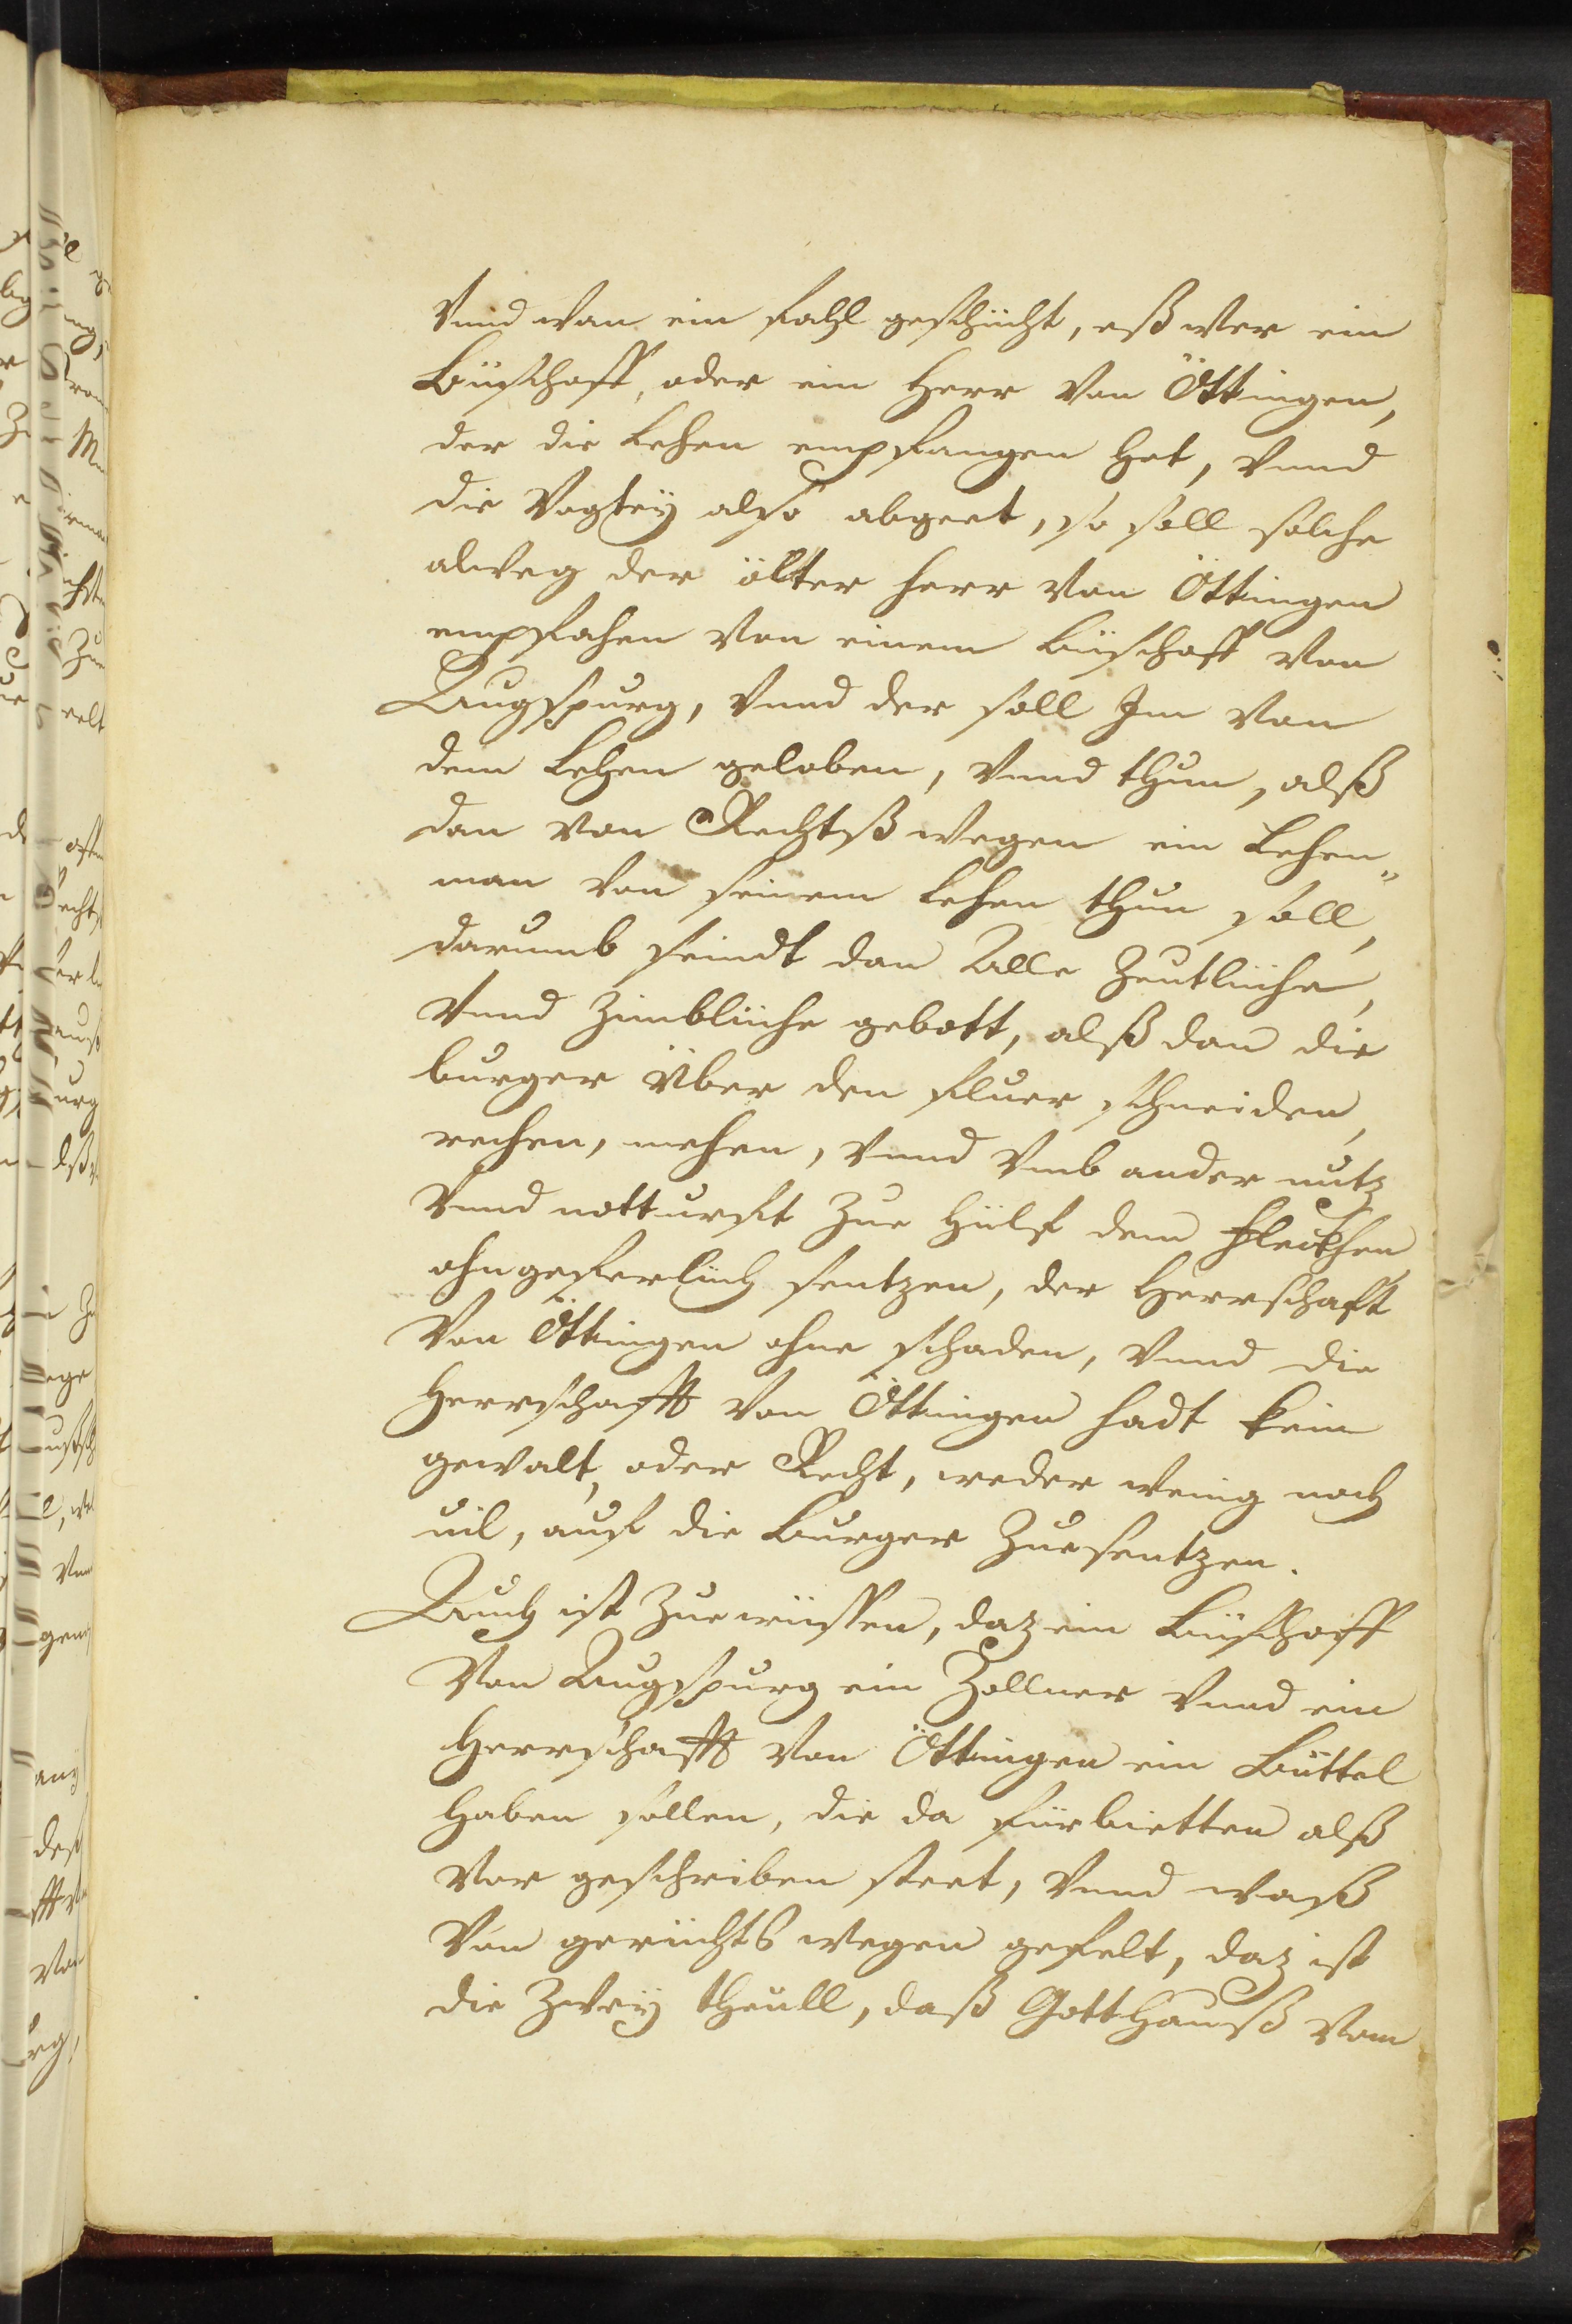 Vnnd wan ein fahl geschücht, eß wer ein
Büschoff, oder ein Herr Von Öttingen,
der die Lehen empfangen Hat, Vnnd
die Vogtey also abgeet, so soll solche
alweg der ölter herr Von Öttingen
empfahen Von einem Büschoff Von
Augspurg, Vnnd der soll Im Von
dem Lehen geloben, Vnnd thun, alß
dan Von Rechtß wegen ein Lehen„
man Von seinem Lehen thun soll,
darumb seindt dan Alle Zeutliche,
Vnnd Zimbliche gebott, alß dan die
burger Über den fluer schneiden,
rechen, mehen, Vnnd Vmb ander nutz
Vnnd notturft Zue Hülf dem fleckhen
ohngeferlich seutzen, der Herrschaft
Von Öttingen ohne schaden, Vnnd die
Herrschafft Von Öttingen hadt kein
gewalt, oder Recht, weder wenig noch
uil, auf die Burger Zue seutzen.
Auch ist Zue wüssen, daz ein Büschoff
Von Augspurg ein Zollner Vnnd ein
Herrschafft Von Öttingen ein Büttel
Haben sollen, die da fürbietten alß
Vor geschriben steet, Vnnd waß
Von gerüchts wegen gefelt, daz ist
die Zwey theull, daß Gotthauß Vom